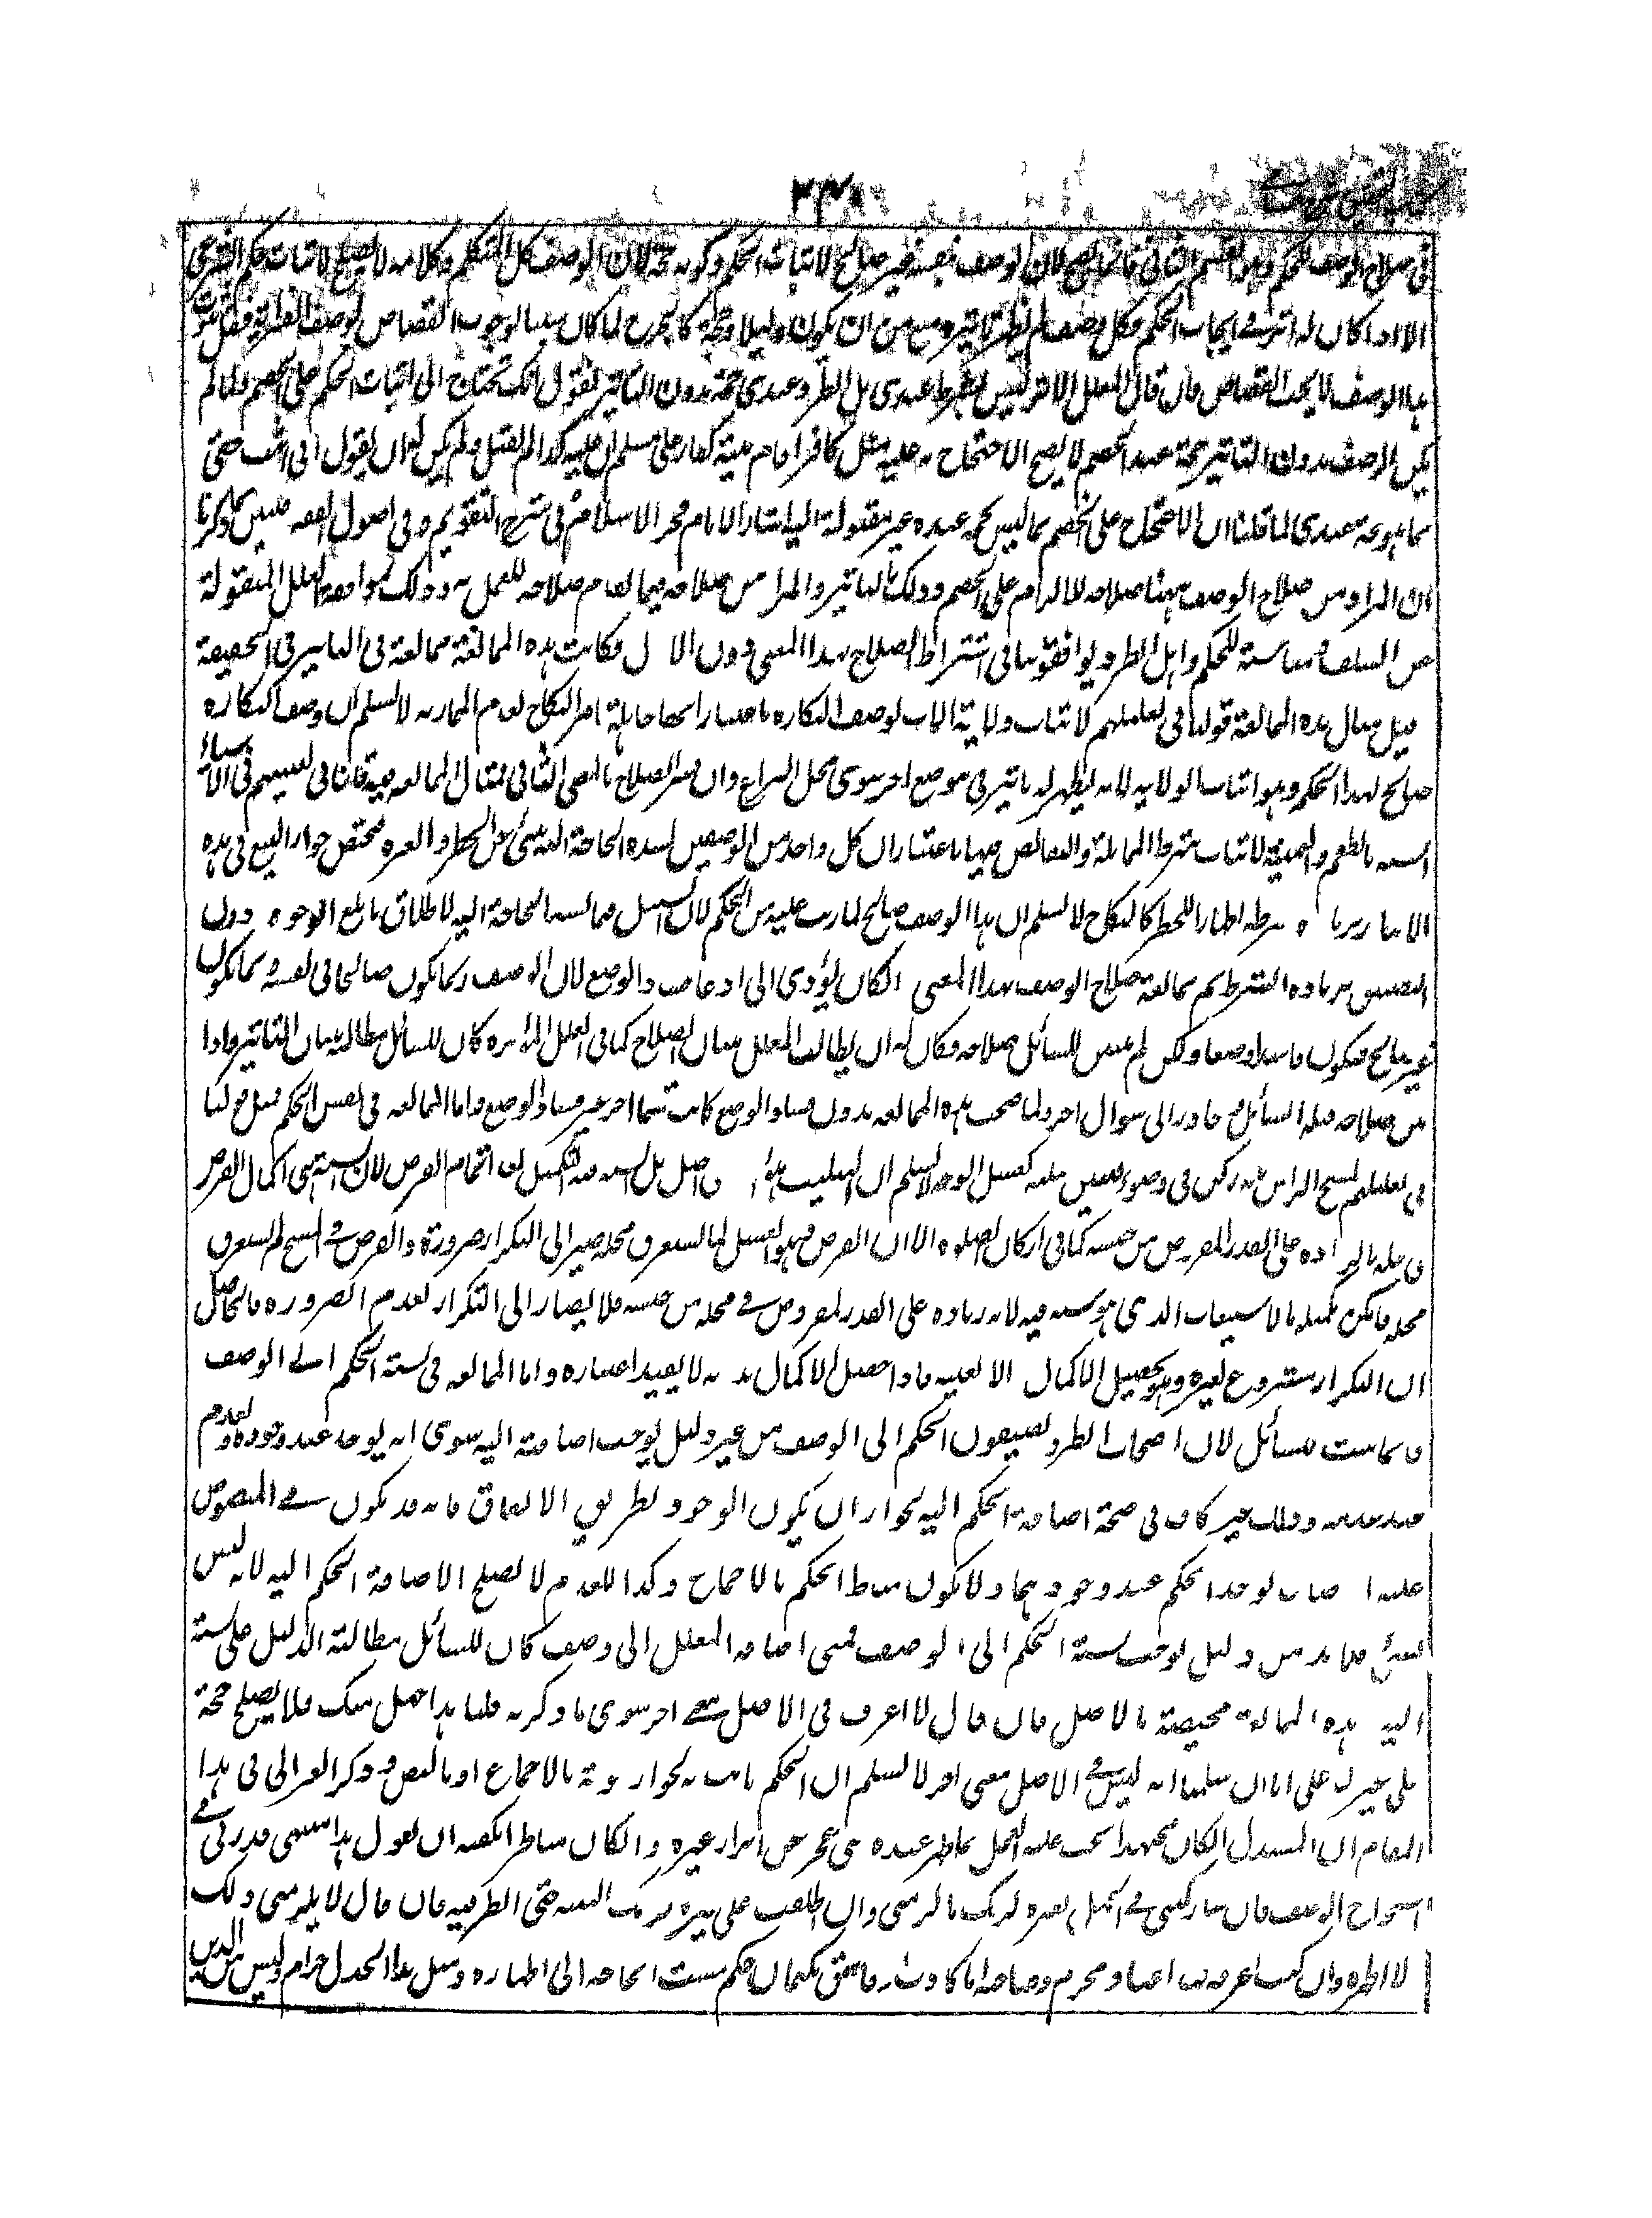 في صلاح الوصف للحكم وهو القسم الثاني فانما يصح لان الوصف بنفسه غير صالح لاثبات الحكم وكونه حجة لان الوصف كل المتكلم وكلامه لا يصلح لاثبات حكم الشرعي
الا اذا كان له اثر في ايجاب الحكم فكل وصف لم يظهر تاثيره منع من ان يكون دليلا وحجة كالجرح لما كان موجبا القصاص بوصف
هذا الوصف لا يجب القصاص فان قال المعلل الاثر ليس بشرط عندي بل الطرد عندي حجة بدون التاثير نقول انك تحتاج الى اثبات الحكم على الخصم فلما لم
يكن الوصف بدون التاثير حجة عند الخصم لا يصح الاحتجاج به عليه مثل كافر اقام بينة كفار على مسلم لم ولم يكن له ان يقول اني اثبت حقي
بما هو حجة عندي لما قلنا ان الاحتجاج على الخصم بما ليس بحجة عنده غير مقبولة اليه اشار الامام فخر الاسلام في شرح التقويم وفي اصول الفقه فتبين بما ذكرنا
ان المراد من صلاح الوصف ههنا صلاحه للالزام على الخصم وذلك بالتاثير والمراد من صلاحه فيما تقدم صلاحه للعمل به وذلك بموافقة العلل المنقولة
عن السلف ومناسبته للحكم واهل الطرد يوافقوننا في اشتراط الصلاح بهذا المعنى دون الاول فكانت هذه الممانعة ممانعة في التاثير في الحقيقة
قيل مثال هذه الممانعة قولنا في تعليلهم لاثبات ولاية الاب لوصف البكارة باعتبار انها جاهلة بامر النكاح لعدم الممارسة لا نسلم ان وصف البكارة
صالح لهذا الحكم وهو اثبات الولاية لانه لم يظهر له تاثير في موضع اخر سوى محل النزاع وان فسر الصلاح بالمعنى الثاني فمثال الممانعة فيه قلنا في تعليلهم في الاشياء
الستة بالطعم والثمنية لاثبات شرط المماثلة والتقابض فيها باعتبار ان كل واحد من الوصفين لشدة الحاجة اليه ينبئ عن الخطر والعزة فيختص جواز البيع في هذه
بزيادة شرط اظهارا للخطر كالنكاح لا نسلم ان هذا الوصف صالح لما رتب عليه من الحكم لان السبيل فيما لشدة الحاجة اليه الاطلاق بابلغ الوجوه دون
التضييق بزيادة الشرط ثم ممانعة صلاح الوصف بهذا المعنى ان كان يؤدي الى ادعاء فساد الوضع لان الوصف كما يكون صالحا في نفسه كما يكون
غير صالح فيكون فاسدا وضعا ولكن لم يتبين للسائل صلاحه فكان له ان يطالب المعلل ببيان الصلاح كما في العلل المؤثرة كان للسائل مطالبة ببيان التاثير فاذا
بين صلاحه قبله السائل او جاوز الى سوال اخر ولما صحت هذه الممانعة بدون فساد الوضع كانت قسما اخر غير فساد الوضع واما الممانعة في نفس الحكم فمثل قولنا
في تعليلهم لمسح الراس بانه ركن في وضوء فيسن تثليثه كغسل الوجه لا نسلم ان التثليث بل السنة فيه التكميل بعد اتمام الفرض لان السنة هي اكمال الفرض
في محله بالزيادة على القدر المفروض من جنسه كما في اركان الصلوة الا ان الفرض فيه وهو الغسل لما استغرق محله صير الى التكرار ضرورة والفرض في المسح لم يستغرق
محله فامكن تكميله بالاستيعاب الذي هو سنة فيه لانه زيادة على القدر المفروض في محله من جنسه فلا يصار الى التكرار لعدم الضرورة فالحاصل
ان التكرار مشروع لغيره وهو تحصيل الاكمال لا لعينه فاذا حصل الاكمال بدونه لا يفيد اعتباره واما الممانعة في نسبة الحكم الى الوصف
للسائل لان اصحاب الطرد يضيفون الحكم الى الوصف من غير دليل يوجب اضافته اليه سوى انه يوجد عند وجوده ويعدم
عند عدمه وذلك غير كاف في صحة اضافة الحكم اليه لجواز ان يكون الوجود بطريق الاتفاق فانه قد يكون في المنصوص
عليه اوصاف يوجد الحكم عند وجودها ولا يكون مناط الحكم بالاجماع وكذا العدم لا يصلح لاضافة الحكم اليه لانه ليس
بشيء فلا بد من دليل يوجب نسبة الحكم الى الوصف فمتى اضافه المعلل الى وصف كان للسائل مطالبة الدليل على نسبته
اليه هذه الممانعة مختصة بالاصل فان قال لا اعرف في الاصل معنى اخر سوى ما ذكرته قلنا هذا جهل منك فلا يصلح حجة
على غيرك على انا ان سلمنا انه ليس في الاصل معنى اخر لا نسلم ان الحكم ثابت به لجواز ثبوته بالاجماع او بالنص وذكر الغزالي في هذا
المقام ان المستدل ان كان مجتهدا يجب عليه العمل بما ظهر عنده حتى عجز عن ابراز غيره وان كان مناظرا يكفيه ان يقول هذا منتهى قدرتي في
استخراج الوصف فان شاركتني في الجهل بغيره لزمك ما لزمني وان اطلعت على غيره لزمك التنبيه حتى انظر فيه فان قال لا يلزمني ذلك
لا اظهره وان كنت اعرفه فهذا عناد محرم وصاحبه اما كاذب او فاسق بكتمان حكم مست الحاجة الى اظهاره ومثل هذا الجدل حرام وليس من الدين